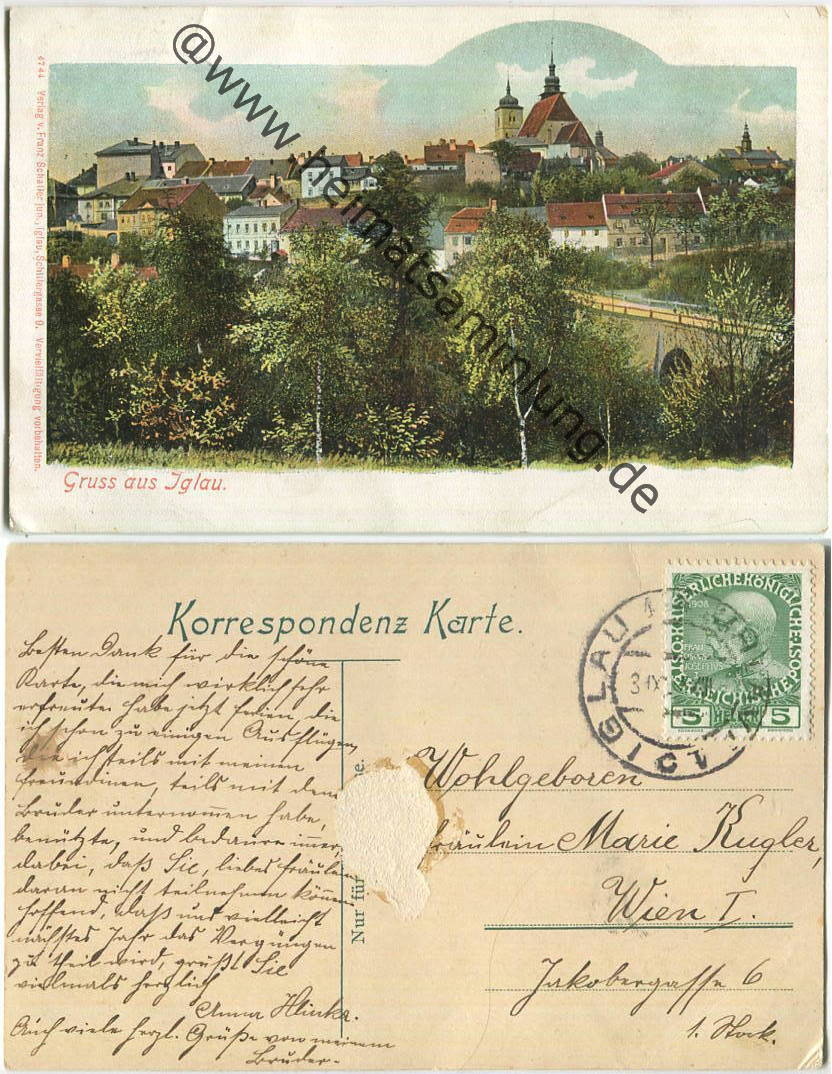 4744 Verlag v. Franz Schaller jun., Iglau, Schillergasse 9. Vervielfältigung vorbehalten.
@www.heimatsammlung.de
Gruss aus Iglau.
Korrespondenz Karte.
IGLAU
KAISERLICHE KÖNIGLICHE ÖSTERREICHISCHE POST
1908
FRANZ
JOSEPHUS
5 HELLER 5
Besten Dank für die schöne
Karte, die mich wirklich sehr
erfreute. Habe jetzt Ferien, die
ich schon zu einigen Ausflügen,
die ich teils mit meinen
Freundinen, teils mit dem
Bruder unternommen habe,
benützte, und bedaure immer
dabei, daß Sie, liebes Fräulein
daran nicht teilnehmen können
hoffend, daß uns vielleicht
nächstes Jahr das Vergnügen
zu theil wird, grüßt Sie
vielmals herzlich
Anna Hlinka.
Auch viele herzl. Grüße von meinem
Bruder.
Nur für
Wohlgeboren
Fräulein Marie Kugler,
Wien I.
Jakobergasse 6
1. Stock.